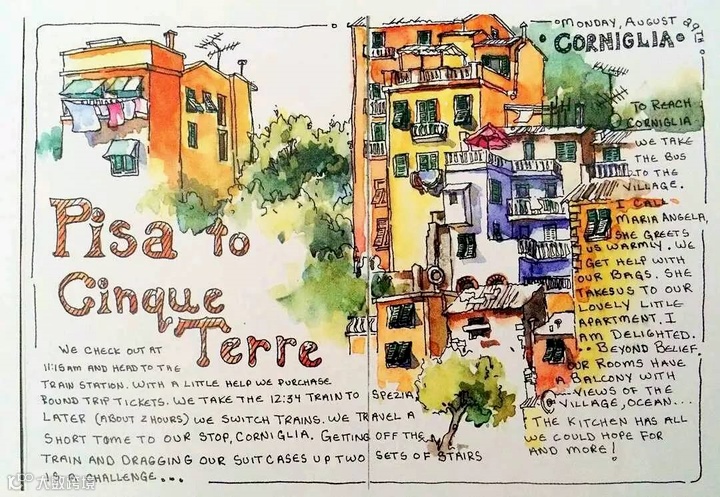 MONDAY, AUGUST 29TH
CORNIGLIA
Pisa to
Cinque
Terre
WE CHECK OUT AT
11:15AM AND HEAD TO THE
TRAIN STATION. WITH A LITTLE HELP WE PURCHASE
ROUND TRIP TICKETS. WE TAKE THE 12:34 TRAIN TO SPEZIA,
LATER (ABOUT 2 HOURS) WE SWITCH TRAINS. WE TRAVEL A
SHORT TOME TO OUR STOP, CORNIGLIA. GETTING OFF THE
TRAIN AND DRAGGING OUR SUITCASES UP TWO SETS OF STAIRS
IS A CHALLENGE...
TO REACH
CORNIGLIA
WE TAKE
THE BUS
TO THE
VILLAGE.
I CALL
MARIA ANGELA,
SHE GREETS
US WARMLY. WE
GET HELP WITH
OUR BAGS. SHE
TAKES US TO OUR
LOVELY LITTLE
APARTMENT. I
AM DELIGHTED.
.. BEYOND BELIEF.
OUR ROOMS HAVE
A BALCONY WITH
VIEWS OF THE
VILLAGE, OCEAN...
THE KITCHEN HAS ALL
WE COULD HOPE FOR
AND MORE!
大数跨境